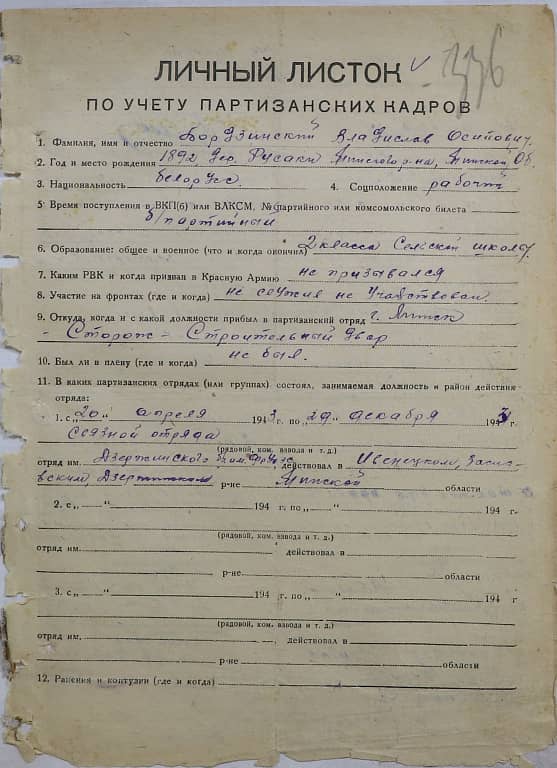 336
ЛИЧНЫЙ ЛИСТОК
ПО УЧЕТУ ПАРТИЗАНСКИХ КАДРОВ
1. Фамилия, имя и отчество Бордзинский Владислав Осипович
2. Год и место рождения 1892, дер. Русаки Минского р-на, Минской Об.
3. Национальность белорусс 4. Соцположение рабочий
5. Время поступления в ВКП(б) или ВЛКСМ, № партийного или комсомольского билета
б/партийный
6. Образование: общее и военное (что и когда окончил) 2 класса Сельской школы
7. Каким РВК и когда призван в Красную Армию не призывался
8. Участие на фронтах (где и когда) не служил не участвовал
9. Откуда, когда и с какой должности прибыл в партизанский отряд г. Минск
- Сторож - Строительный двор
10. Был ли в плену (где и когда) не был.
11. В каких партизанских отрядах (или группах) состоял, занимаемая должность и район действия
отряда:
1. с „20" апреля 1943 г. по „29" декабря 1943
Связной отряда
(рядовой, ком. взвода и т. д.)
отряд им. Дзержинского действовал в Ивенецком, Заслав-
ским, Дзержинском р-не Минской области
2. с „ — " 194 г. по „ — " 194 г.
(рядовой, ком. взвода и т. д.)
отряд им. действовал в
р-не области
3. с „ — " 194 г. по „ — " 194 г
(рядовой, ком. взвода и т. д.)
отряд им. действовал в
р-не области
12. Ранения и контузии (где и когда)